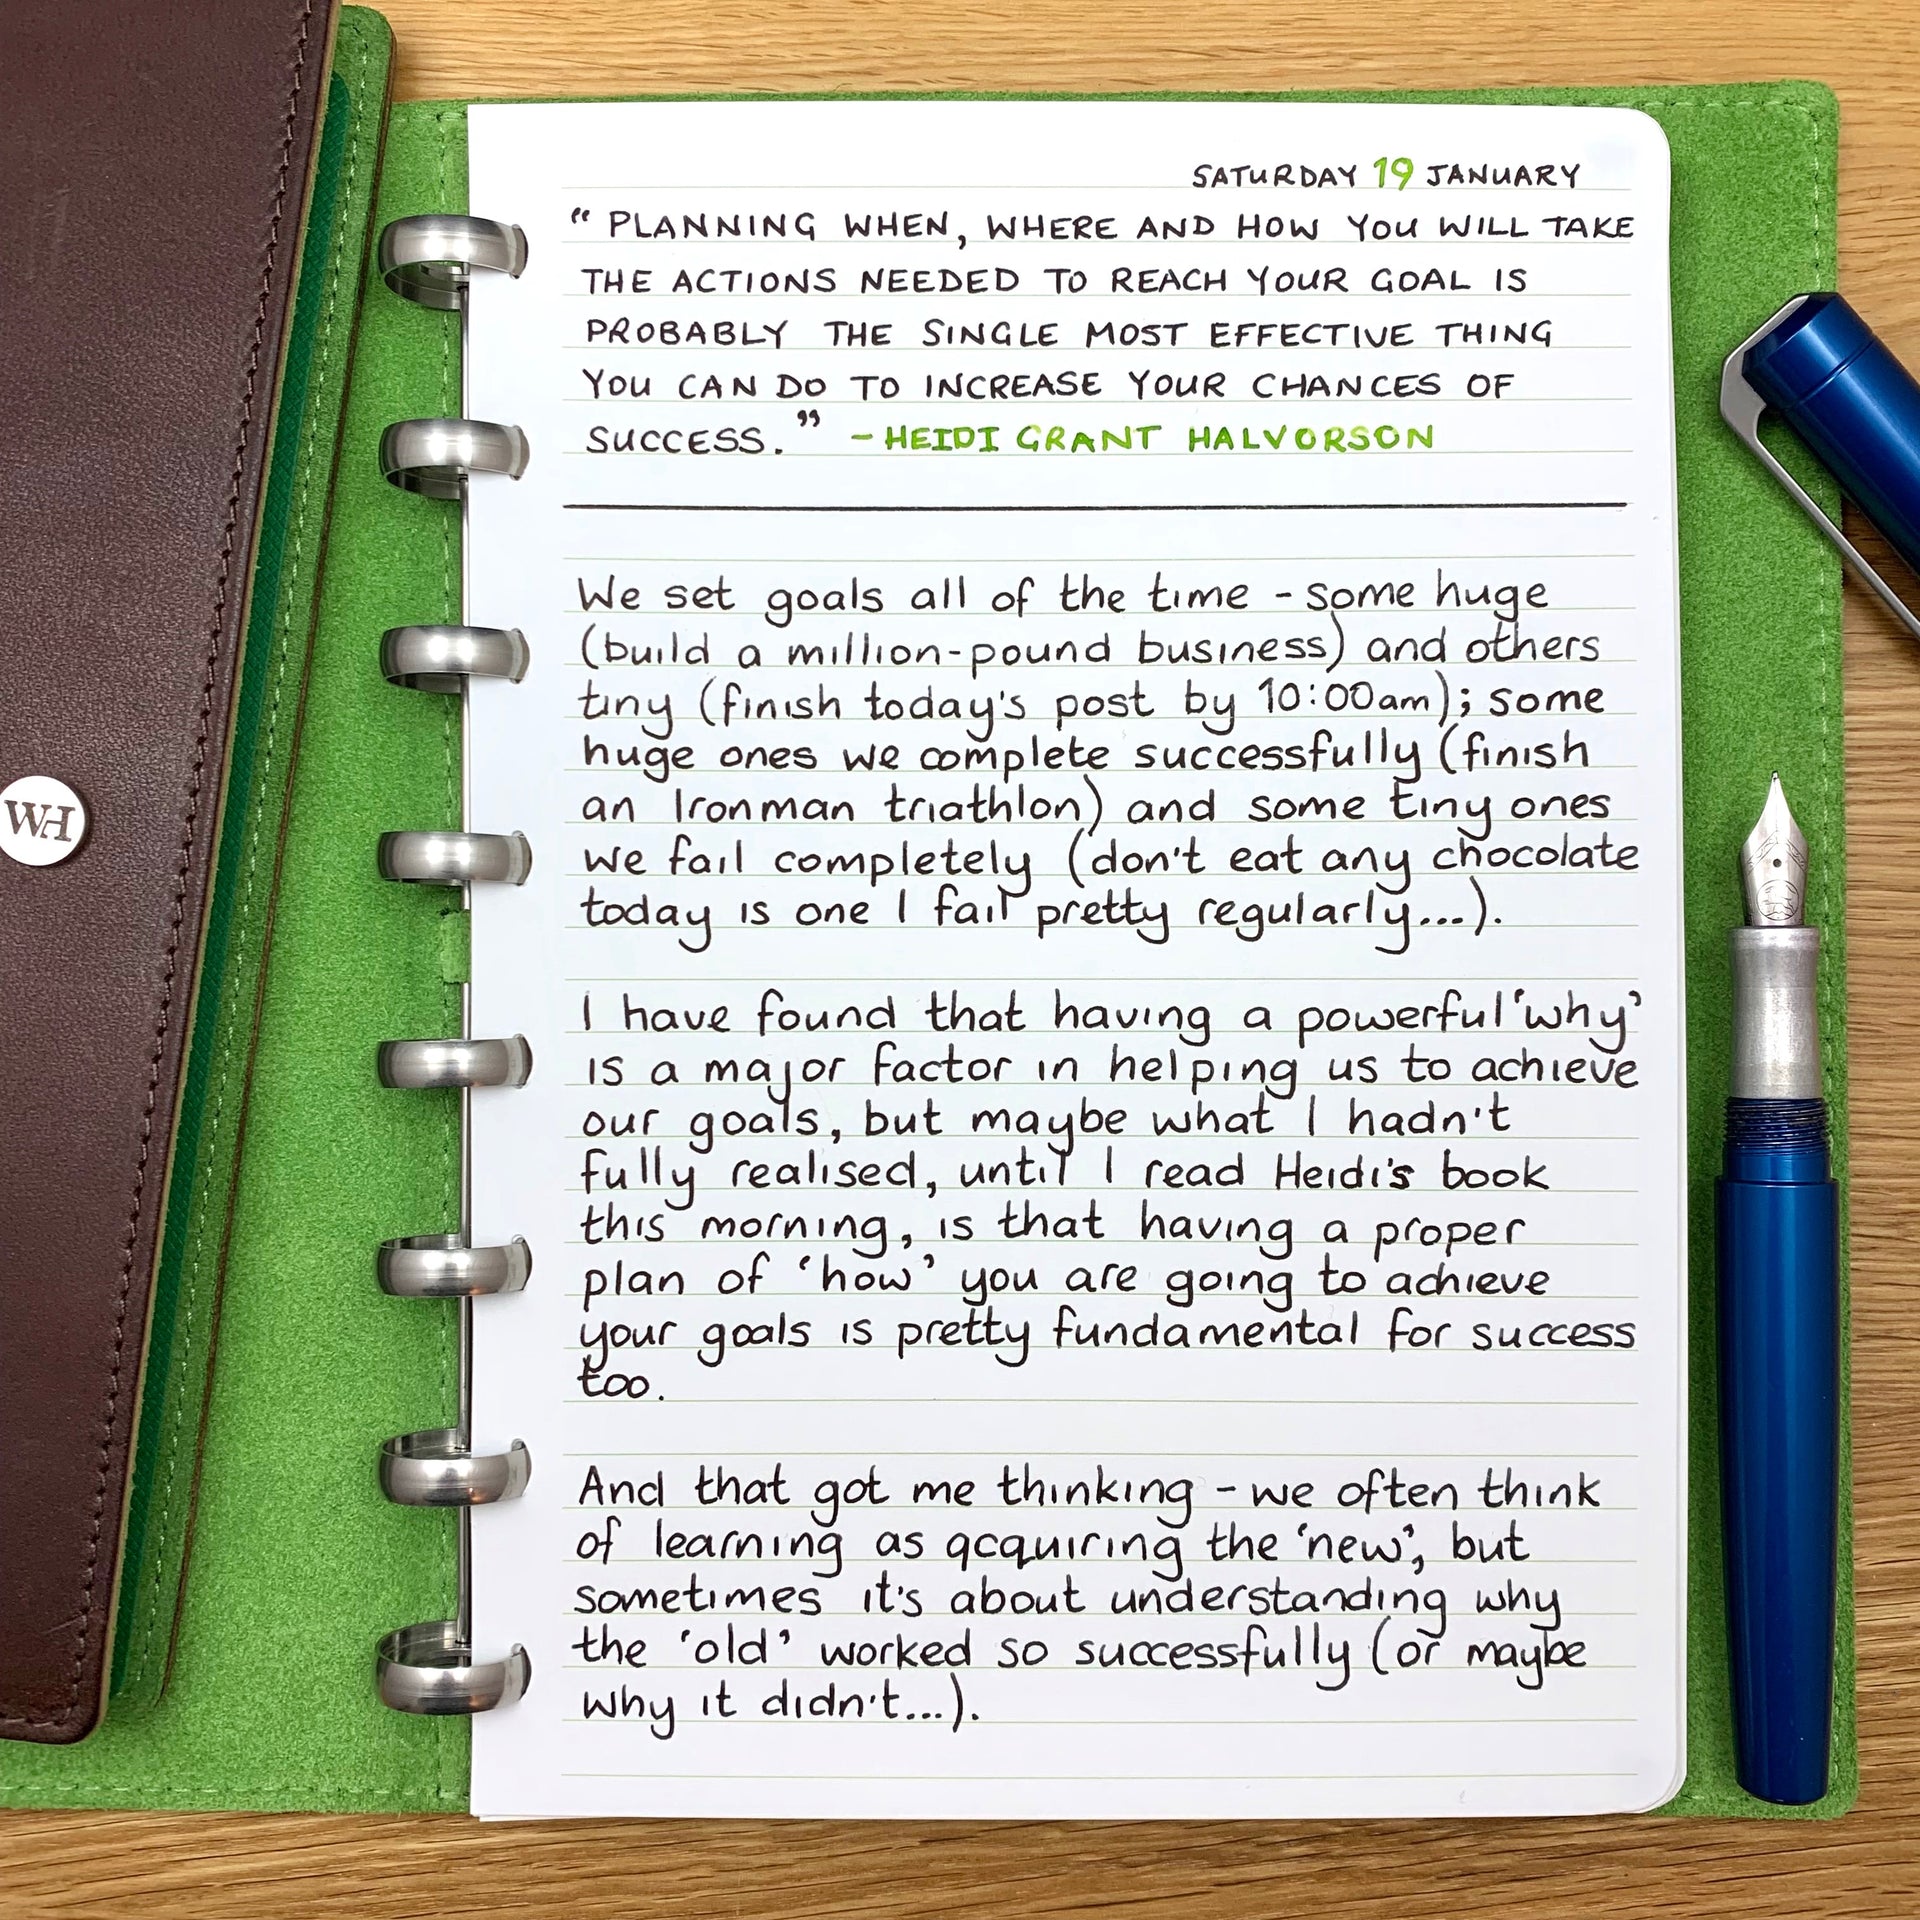 SATURDAY 19 JANUARY
" PLANNING WHEN, WHERE AND HOW YOU WILL TAKE
THE ACTIONS NEEDED TO REACH YOUR GOAL IS
PROBABLY THE SINGLE MOST EFFECTIVE THING
YOU CAN DO TO INCREASE YOUR CHANCES OF
SUCCESS." - HEIDI GRANT HALVORSON
We set goals all of the time - some huge
(build a million-pound business) and others
tiny (finish today's post by 10:00am); some
huge ones we complete successfully (finish
an Ironman triathlon) and some tiny ones
we fail completely (don't eat any chocolate
today is one I fail pretty regularly...).
I have found that having a powerful 'why'
is a major factor in helping us to achieve
our goals, but maybe what I hadn't
fully realised, until I read Heidi's book
this morning, is that having a proper
plan of 'how' you are going to achieve
your goals is pretty fundamental for success
too.
And that got me thinking - we often think
of learning as acquiring the 'new', but
sometimes it's about understanding why
the 'old' worked so successfully (or maybe
why it didn't...).
WH